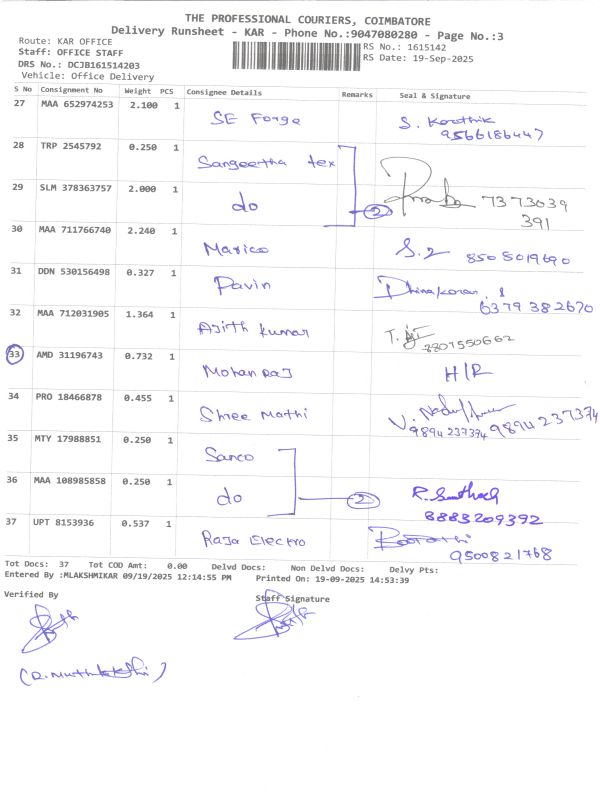 THE PROFESSIONAL COURIERS, COIMBATORE
Delivery Runsheet - KAR - Phone No.:9047080280 - Page No.:3
Route: KAR OFFICE
RS No.: 1615142
Staff: OFFICE STAFF
RS Date: 19-Sep-2025
DRS No.: DCJB161514203
Vehicle: Office Delivery
S No Consignment No Weight PCS Consignee Details Remarks Seal & Signature
27 MAA 652974253 2.100 1 SE Forge S. Karthik
9566186447
28 TRP 2545792 0.250 1 Sangeetha tex
29 SLM 378363757 2.000 1 do 2 7373039
391
30 MAA 711766740 2.240 1 Marico S. 2 8508019690
31 DDN 530156498 0.327 1 Pavin Dhinakaran. S
6379 382670
32 MAA 712031905 1.364 1 Ajith kumar T.
8807550662
33 AMD 31196743 0.732 1 Mohan Raj H/R
34 PRO 18466878 0.455 1 Shree Mathi V.
9894 237374 9894 237374
35 MTY 17988851 0.250 1 Sanco
36 MAA 108985858 0.250 1 do 2 R.
8883209392
37 UPT 8153936 0.537 1 Raja Electro
9500821768
Tot Docs: 37 Tot COD Amt: 0.00 Delvd Docs: Non Delvd Docs: Delvy Pts:
Entered By :MLAKSHMIKAR 09/19/2025 12:14:55 PM Printed On: 19-09-2025 14:53:39
Verified By Staff Signature